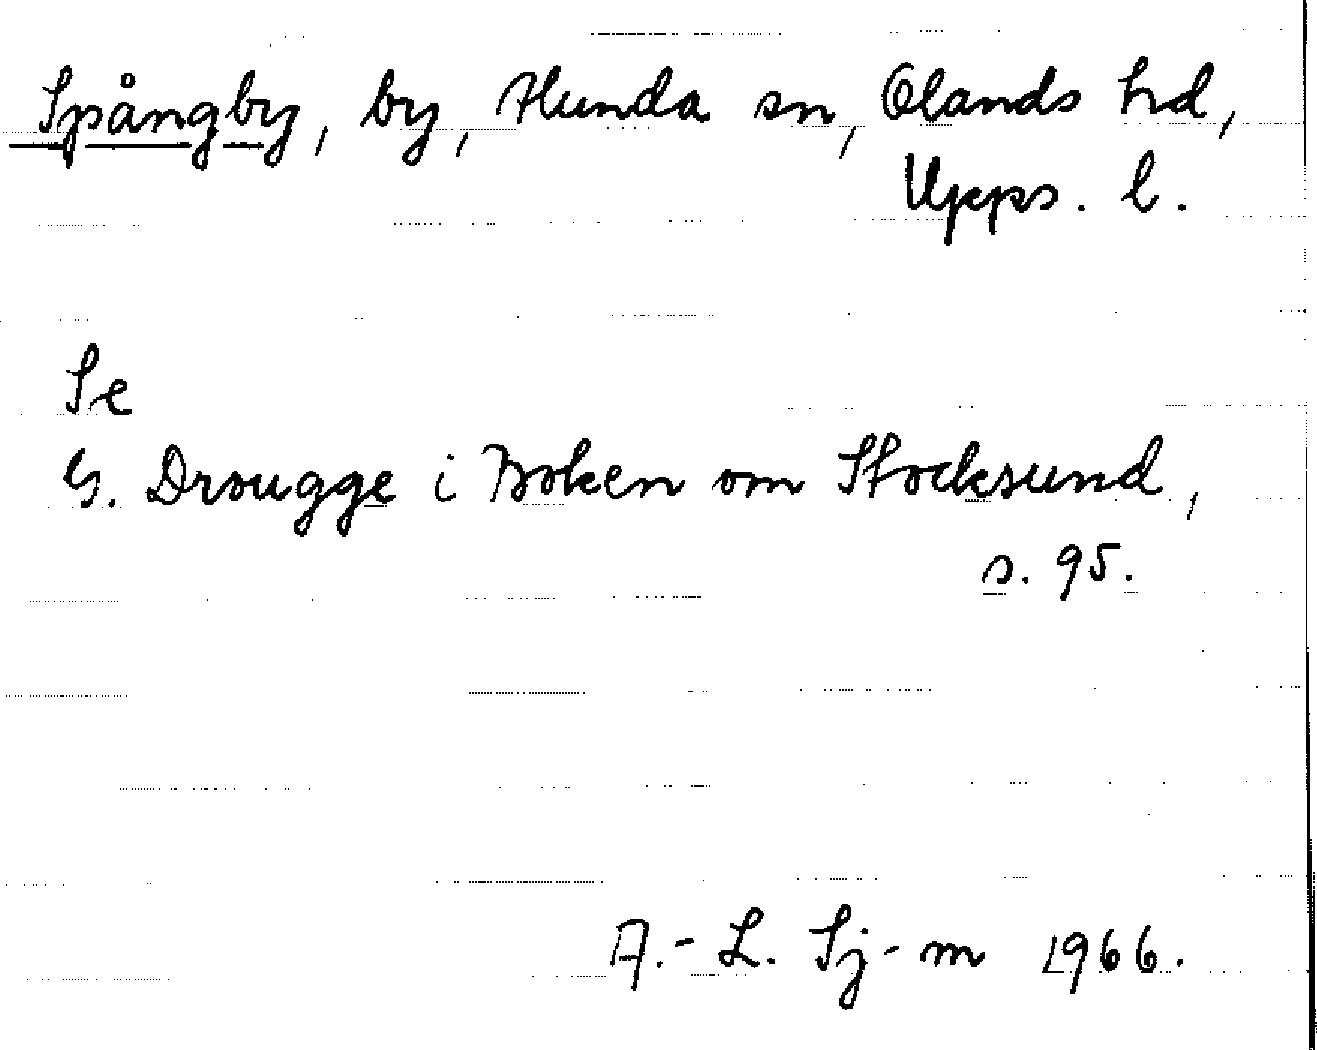 Spångby, by, Alunda sn, Olands hd,
Upps. l.
Se
G. Drougge i Boken om Stocksund,
s. 95.
A.-L. Sj-m 1966.